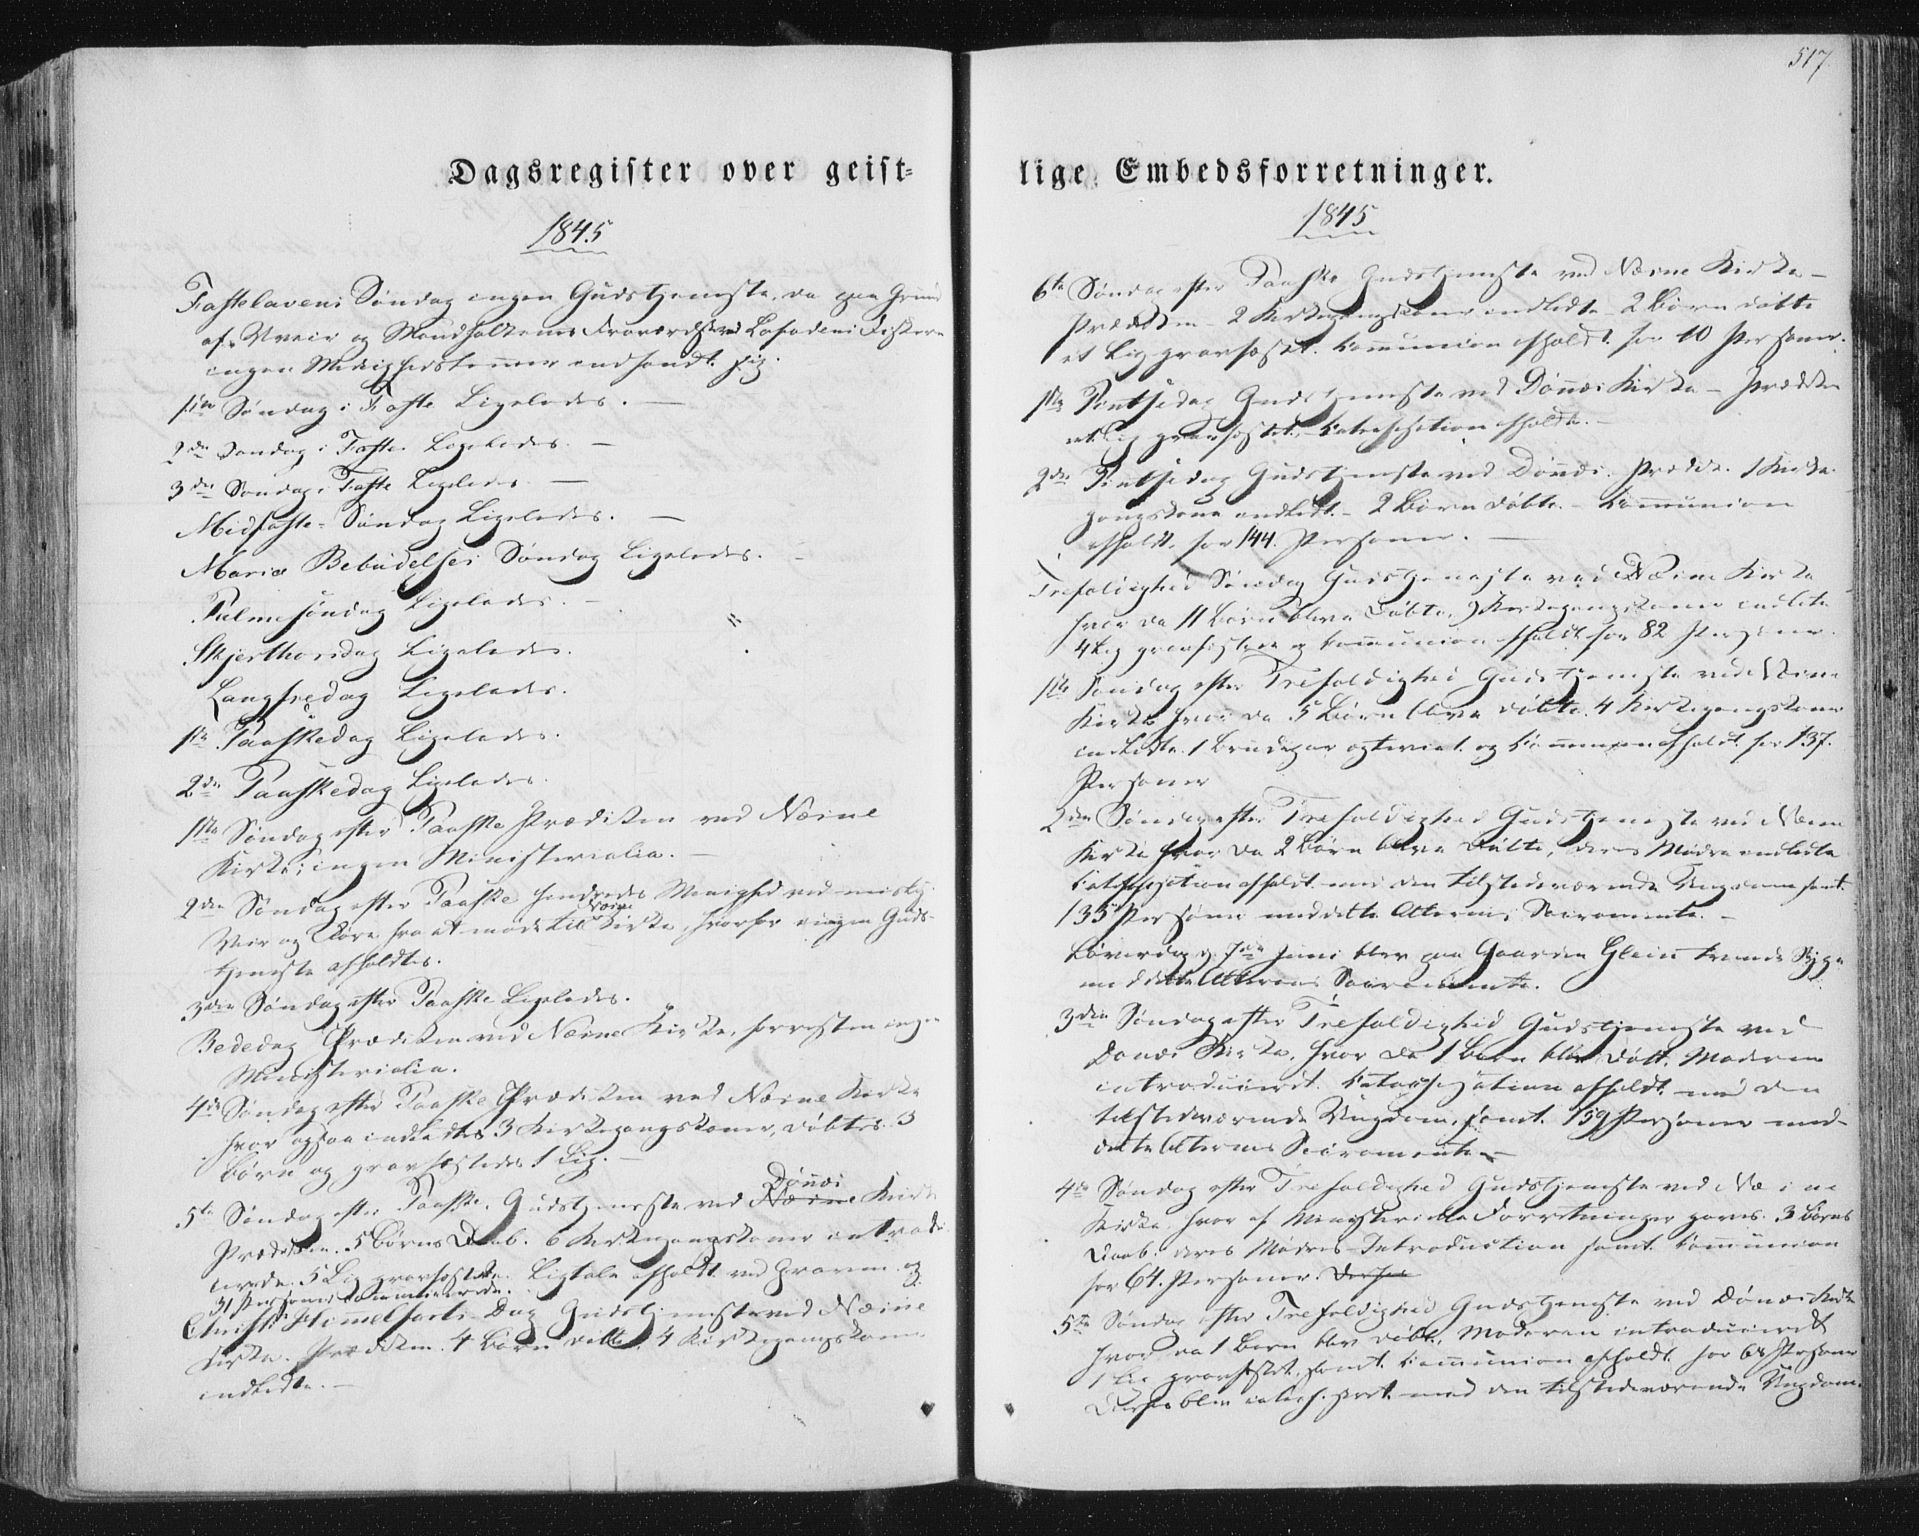 Dagsregister over geist-
1845
Fastelavens Søndag ingen Gudstjeneste, da paa Grund
af Uveir og Mandfolkenes Fraværelse ved Lofodens Fiskerie
ingen Menighedslemmer indfandt sig.
1ste Søndag i Faste Ligeledes. —
2den Søndag i Faste Ligeledes. —
3die Søndag i Faste Ligeledes. —
Midfaste-Søndag Ligeledes. —
Mariæ Bebudelses Søndag Ligeledes. —
Palmesøndag Ligeledes. —
Skjerthorsdag Ligeledes.
Langfredag Ligeledes.
1ste Paaskedag Ligeledes.
2den Paaskedag Ligeledes.
1ste Søndag efter Paaske Prædiken ved Næsne
Kirke; ingen Ministerialia. —
2den Søndag efter Paaske hindredes Menighed ved misligt
Veir og Føre fra at møde til Næsne Kirke, hvorfor ingen Guds-
tjeneste afholdtes.
3die Søndag efter Paaske Ligeledes.
Bededag Prædiken ved Næsne Kirke, forresten ingen
Ministerialia.
4de Søndag efter Paaske Prædiken ved Næsne Kirke
hvor ogsaa indledtes 3 Kirkegangskoner, døbtes 3
Børn og gravfæstedes 1 Lig. —
5te Søndag efter Paaske. Gudstjeneste ved Næsne Dønæs Kirke
Prædiken. 5 Børns Daab. 6 Kirkegangskoner introdu-
cerede. 5 Lig gravfæstede. Ligtale afholdt ved Graven og
31 Personer communicerede.
Christi Himmelfarts Dag Gudstjeneste ved Næsne
Kirke. Prædiken. 4 Børn døbte. 4 Kirkegangskoner
indledte. —
517.
lige Embedsforretninger.
1845
6te Søndag efter Paaske Gudstjeneste ved Næsne Kirke —
Prædiken 2 Kirkegangskoner indledte 2 Børn døbte
et Lig gravfæstet. Communion afholdt for 40 Personer.
1ste Pintsedag Gudstjeneste ved Dønæs Kirke — Prædiken
et Lig gravfæstet. — Catechisation afholdt. —
2den Pintsedag Gudstjeneste ved Dønæs. Prædik. 1 Kirke-
gangskone indledt. — 2 Børn døbte. — Communion
afholdt for 144 Personer. —
Trefoldighed Søndag Gudstjeneste ved Næsne Kirke
hvor da 11 Børn bleve døbte, 9 Kirkegangskoner indledte
4 Lig gravfæstede og Communion afholdt for 82 Personer.
1ste Søndag efter Trefoldighed Gudstjeneste ved Næsne
Kirke hvor da 5 Børn bleve døbte. 4 Kirkegangskoner
indledte. 1 Brudepar agteviet og Communion afholdt for 137
Personer
2den Søndag efter Trefoldighed Gudstjeneste ved Næsne
Kirke hvor da 2 Børn bleve døbte, deres Mødre indledte
Catechisation afholdt med den tilstedeværende Ungdom samt
135 Personer meddelte Alterens Sacramente. —
Løverdag d. 7de Juni blev paa Gaarden Glein tvende Syge
meddelte Alterens Sacramente.
3die Søndag efter Trefoldighed Gudstjeneste ved
Dønæs Kirke, hvor da 1 Barn blev døbt, Moderen
introduceret. Catechisation afholdt med den
tilstedeværende Ungdom, samt 159 Personer med-
deelte Alterens Sacramente. —
4de Søndag efter Trefoldighed Gudstjeneste ved Næsne
Kirke, hvor af Ministerielle Forretninger gaves. 3 Børns
Daab. deres Mødres Introduction samt Communion
for 64 Personer.
5te Søndag efter Trefoldighed Gudstjeneste ved Dønæs Kirke
hvor da 1 Barn blev døbt, Moderen introduceret
1 Lig gravfæstet, samt Communion afholdt for 68 Personer
blev catechiseret med den tilstedeværende Ungdom.